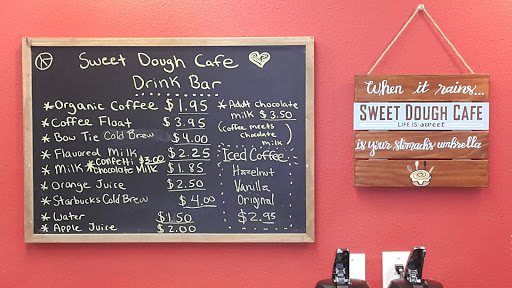 K
Sweet Dough Cafe
Drink Bar
* Organic Coffee $1.95
* Coffee Float $3.95
* Bow Tie Cold Brew $4.00
* Flavored Milk $2.25
* Confetti $3.00
* Milk Chocolate Milk $1.85
* Orange Juice $2.50
* Starbucks Cold Brew $4.00
* Water $1.50
* Apple Juice $2.00
* Adult chocolate
milk $3.50
(coffee meets
chocolate
milk)
Iced Coffee
Hazelnut
Vanilla
Original
$2.95
When it rains...
SWEET DOUGH CAFE
LIFE IS sweet
is your stomachs umbrella